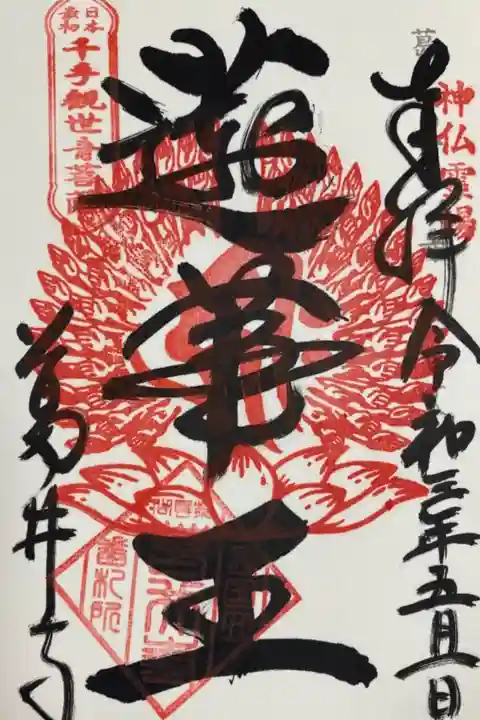 奉拝
令和三年五月一日
神仏霊場
葛
蓮華王
日本
最初
千手観世音菩薩
葛井寺